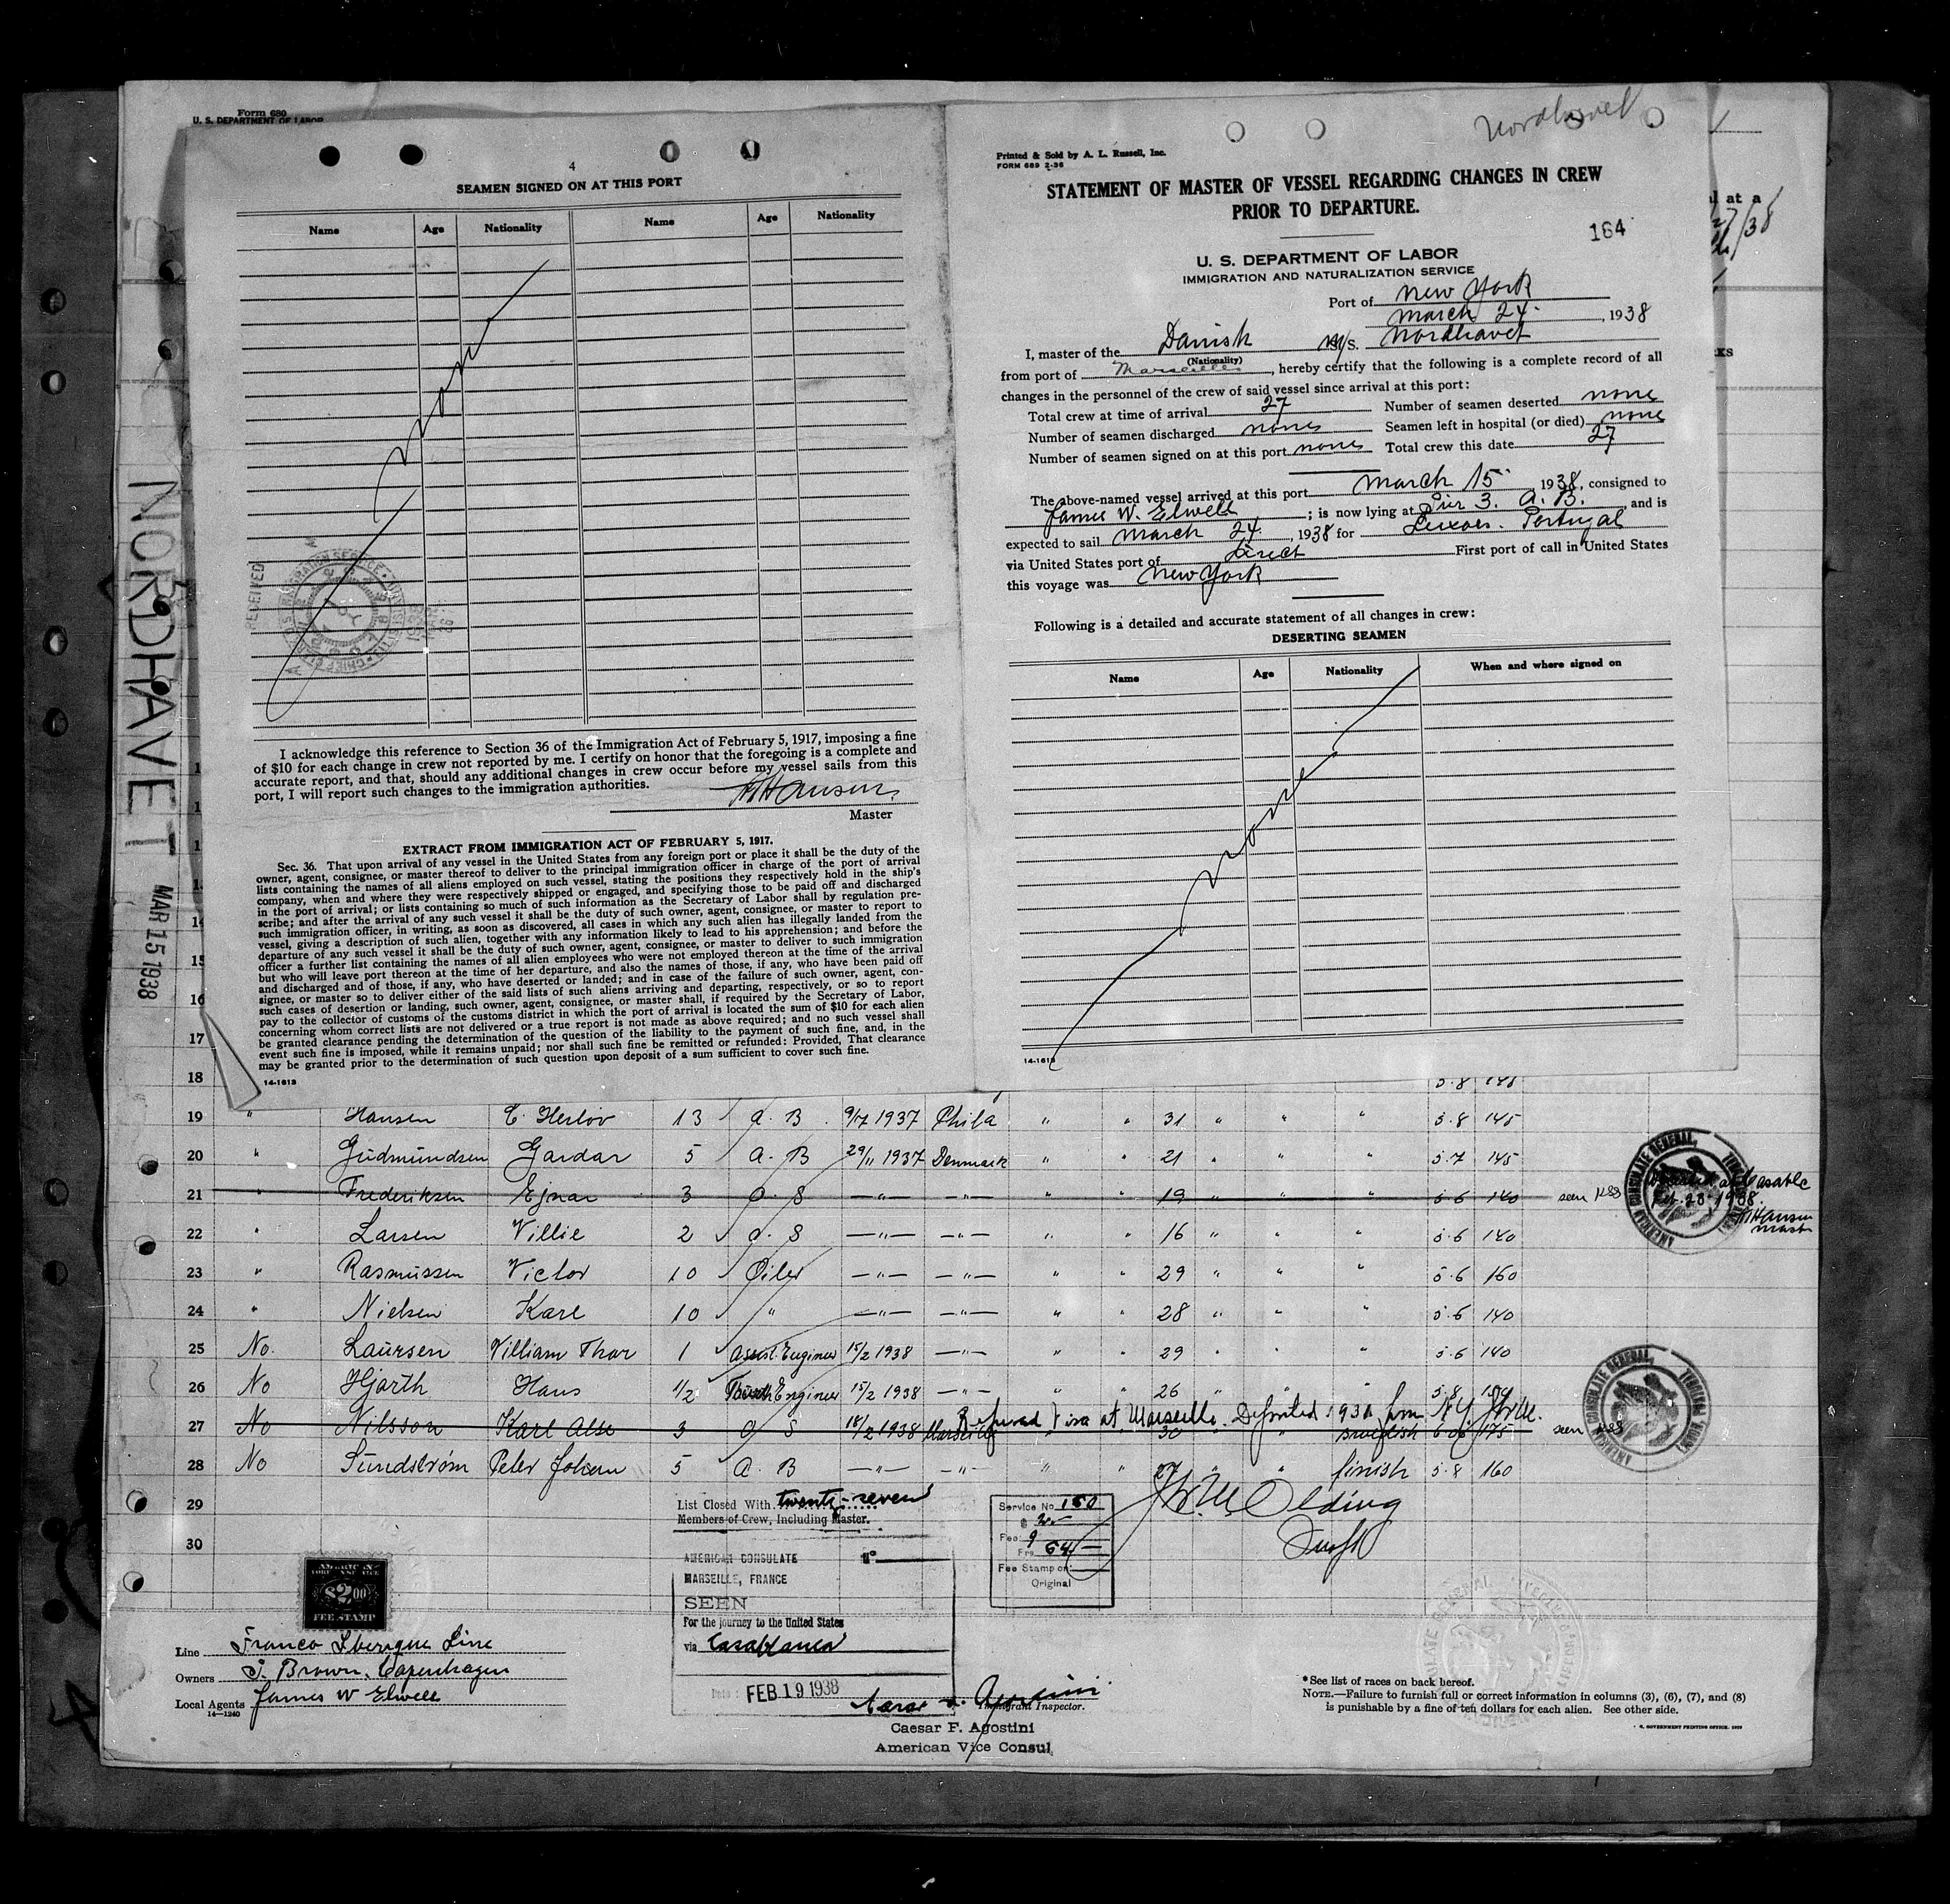 Form 680
U. S. DEPARTMENT OF LABOR
4
SEAMEN SIGNED ON AT THIS PORT
Name Age Nationality Name Age Nationality
None
RECEIVED
I acknowledge this reference to Section 36 of the Immigration Act of February 5, 1917, imposing a fine
of $10 for each change in crew not reported by me. I certify on honor that the foregoing is a complete and
accurate report, and that, should any additional changes in crew occur before my vessel sails from this
port, I will report such changes to the immigration authorities.
Hansen
Master
EXTRACT FROM IMMIGRATION ACT OF FEBRUARY 5, 1917.
Sec. 36. That upon arrival of any vessel in the United States from any foreign port or place it shall be the duty of the
owner, agent, consignee, or master thereof to deliver to the principal immigration officer in charge of the port of arrival
lists containing the names of all aliens employed on such vessel, stating the positions they respectively hold in the ship's
company, when and where they were respectively shipped or engaged, and specifying those to be paid off and discharged
in the port of arrival; or lists containing so much of such information as the Secretary of Labor shall by regulation pre-
scribe; and after the arrival of any such vessel it shall be the duty of such owner, agent, consignee, or master to report to
such immigration officer, in writing, as soon as discovered, all cases in which any such alien has illegally landed from the
vessel, giving a description of such alien, together with any information likely to lead to his apprehension; and before the
departure of any such vessel it shall be the duty of such owner, agent, consignee, or master to deliver to such immigration
officer a further list containing the names of all alien employees who were not employed thereon at the time of the arrival
but who will leave port thereon at the time of her departure, and also the names of those, if any, who have been paid off
and discharged and of those, if any, who have deserted or landed; and in case of the failure of such owner, agent, con-
signee, or master so to deliver either of the said lists of such aliens arriving and departing, respectively, or so to report
such cases of desertion or landing, such owner, agent, consignee, or master shall, if required by the Secretary of Labor,
pay to the collector of customs of the customs district in which the port of arrival is located the sum of $10 for each alien
concerning whom correct lists are not delivered or a true report is not made as above required; and no such vessel shall
be granted clearance pending the determination of the question of the liability to the payment of such fine, and, in the
event such fine is imposed, while it remains unpaid; nor shall such fine be remitted or refunded: Provided, That clearance
may be granted prior to the determination of such question upon deposit of a sum sufficient to cover such fine.
14-1613
Nordhavet
Printed & Sold by A. L. Russell, Inc.
FORM 689 2-36
STATEMENT OF MASTER OF VESSEL REGARDING CHANGES IN CREW
PRIOR TO DEPARTURE.
164
U. S. DEPARTMENT OF LABOR
IMMIGRATION AND NATURALIZATION SERVICE
Port of New York
March 24. , 1938
I, master of the Danish M/S. Nordhavet
(Nationality)
from port of Marseilles , hereby certify that the following is a complete record of all
changes in the personnel of the crew of said vessel since arrival at this port:
Total crew at time of arrival 27 Number of seamen deserted none
Number of seamen discharged none Seamen left in hospital (or died) none
Number of seamen signed on at this port none Total crew this date 27
The above-named vessel arrived at this port March 15 1938, consigned to
James W. Elwell ; is now lying at Pier 3. A. B. , and is
expected to sail March 24. , 1938 for Leixoes. Portugal
via United States port of direct First port of call in United States
this voyage was New York
Following is a detailed and accurate statement of all changes in crew:
DESERTING SEAMEN
Name Age Nationality When and where signed on
None
14-1613
NORDHAVET
MAR 15 1938
14
15
16
17
18 5.8 145
19 " Hansen C. Herlov 13 A. B. 9/7 1937 Phila " " 31 " " " 5.8 145
20 " Gudmundsen Gardar 5 A. B 29/11 1937 Denmark " " 21 " " " 5.7 145
21 " Frederiksen Ejnar 3 O. S —"— —"— " " 19 " " " 5.6 140 seen
Feb. 23. 1938.
Hansen
22 " Larsen Villie 2 O. S —"— —"— " " 16 " " " 5.6 140
23 " Rasmussen Victor 10 Oiler —"— —"— " " 29 " " " 5.6 160
24 " Nielsen Karl 10 " —"— —"— " " 28 " " " 5.6 140
25 No. Laursen William Thor 1 Assist. Engineer 15/2 1938 —"— " " 29 " " " 5.6 140
26 No Hjorth Hans 1/2 Engineer 15/2 1938 —"— " " 26 " " " 5.8
Refused Visa at Marseille. Deported 193 from N.Y.
27 No Nilsson Karl 3 O S 18/2 1938 Marseille " " 30 " " swedish 175 seen
28 No Sundstrøm Peter Johan 5 A. B —"— —"— " " 27 " " finish 5.8 160
29
30
List Closed With twenty-seven
Members of Crew, Including Master.
AMERICAN CONSULATE
MARSEILLE, FRANCE
SEEN
For the journey to the United States
via Casablanca
Date: FEB 19 1938
Service No 150
Fee:
Frs. 64
Fee Stamp on
Original
AMERICAN CONSULATE GENERAL,
AMERICAN CONSULATE GENERAL,
$2.00
FEE STAMP
Line Franco Iberique Line
Owners J. Brown, Copenhagen
Local Agents James W Elwell
14—1240
Immigrant Inspector.
Caesar F. Agostini
American Vice Consul
*See list of races on back hereof.
NOTE.—Failure to furnish full or correct information in columns (3), (6), (7), and (8)
is punishable by a fine of ten dollars for each alien. See other side.